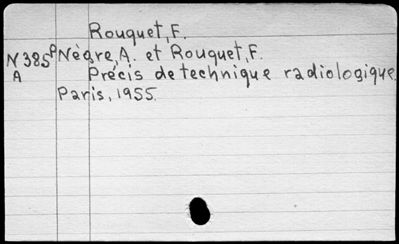 Rouquet, F.
N385P Nègre, A. et Rouquet, F.
A Précis de technique radiologique.
Paris, 1955.